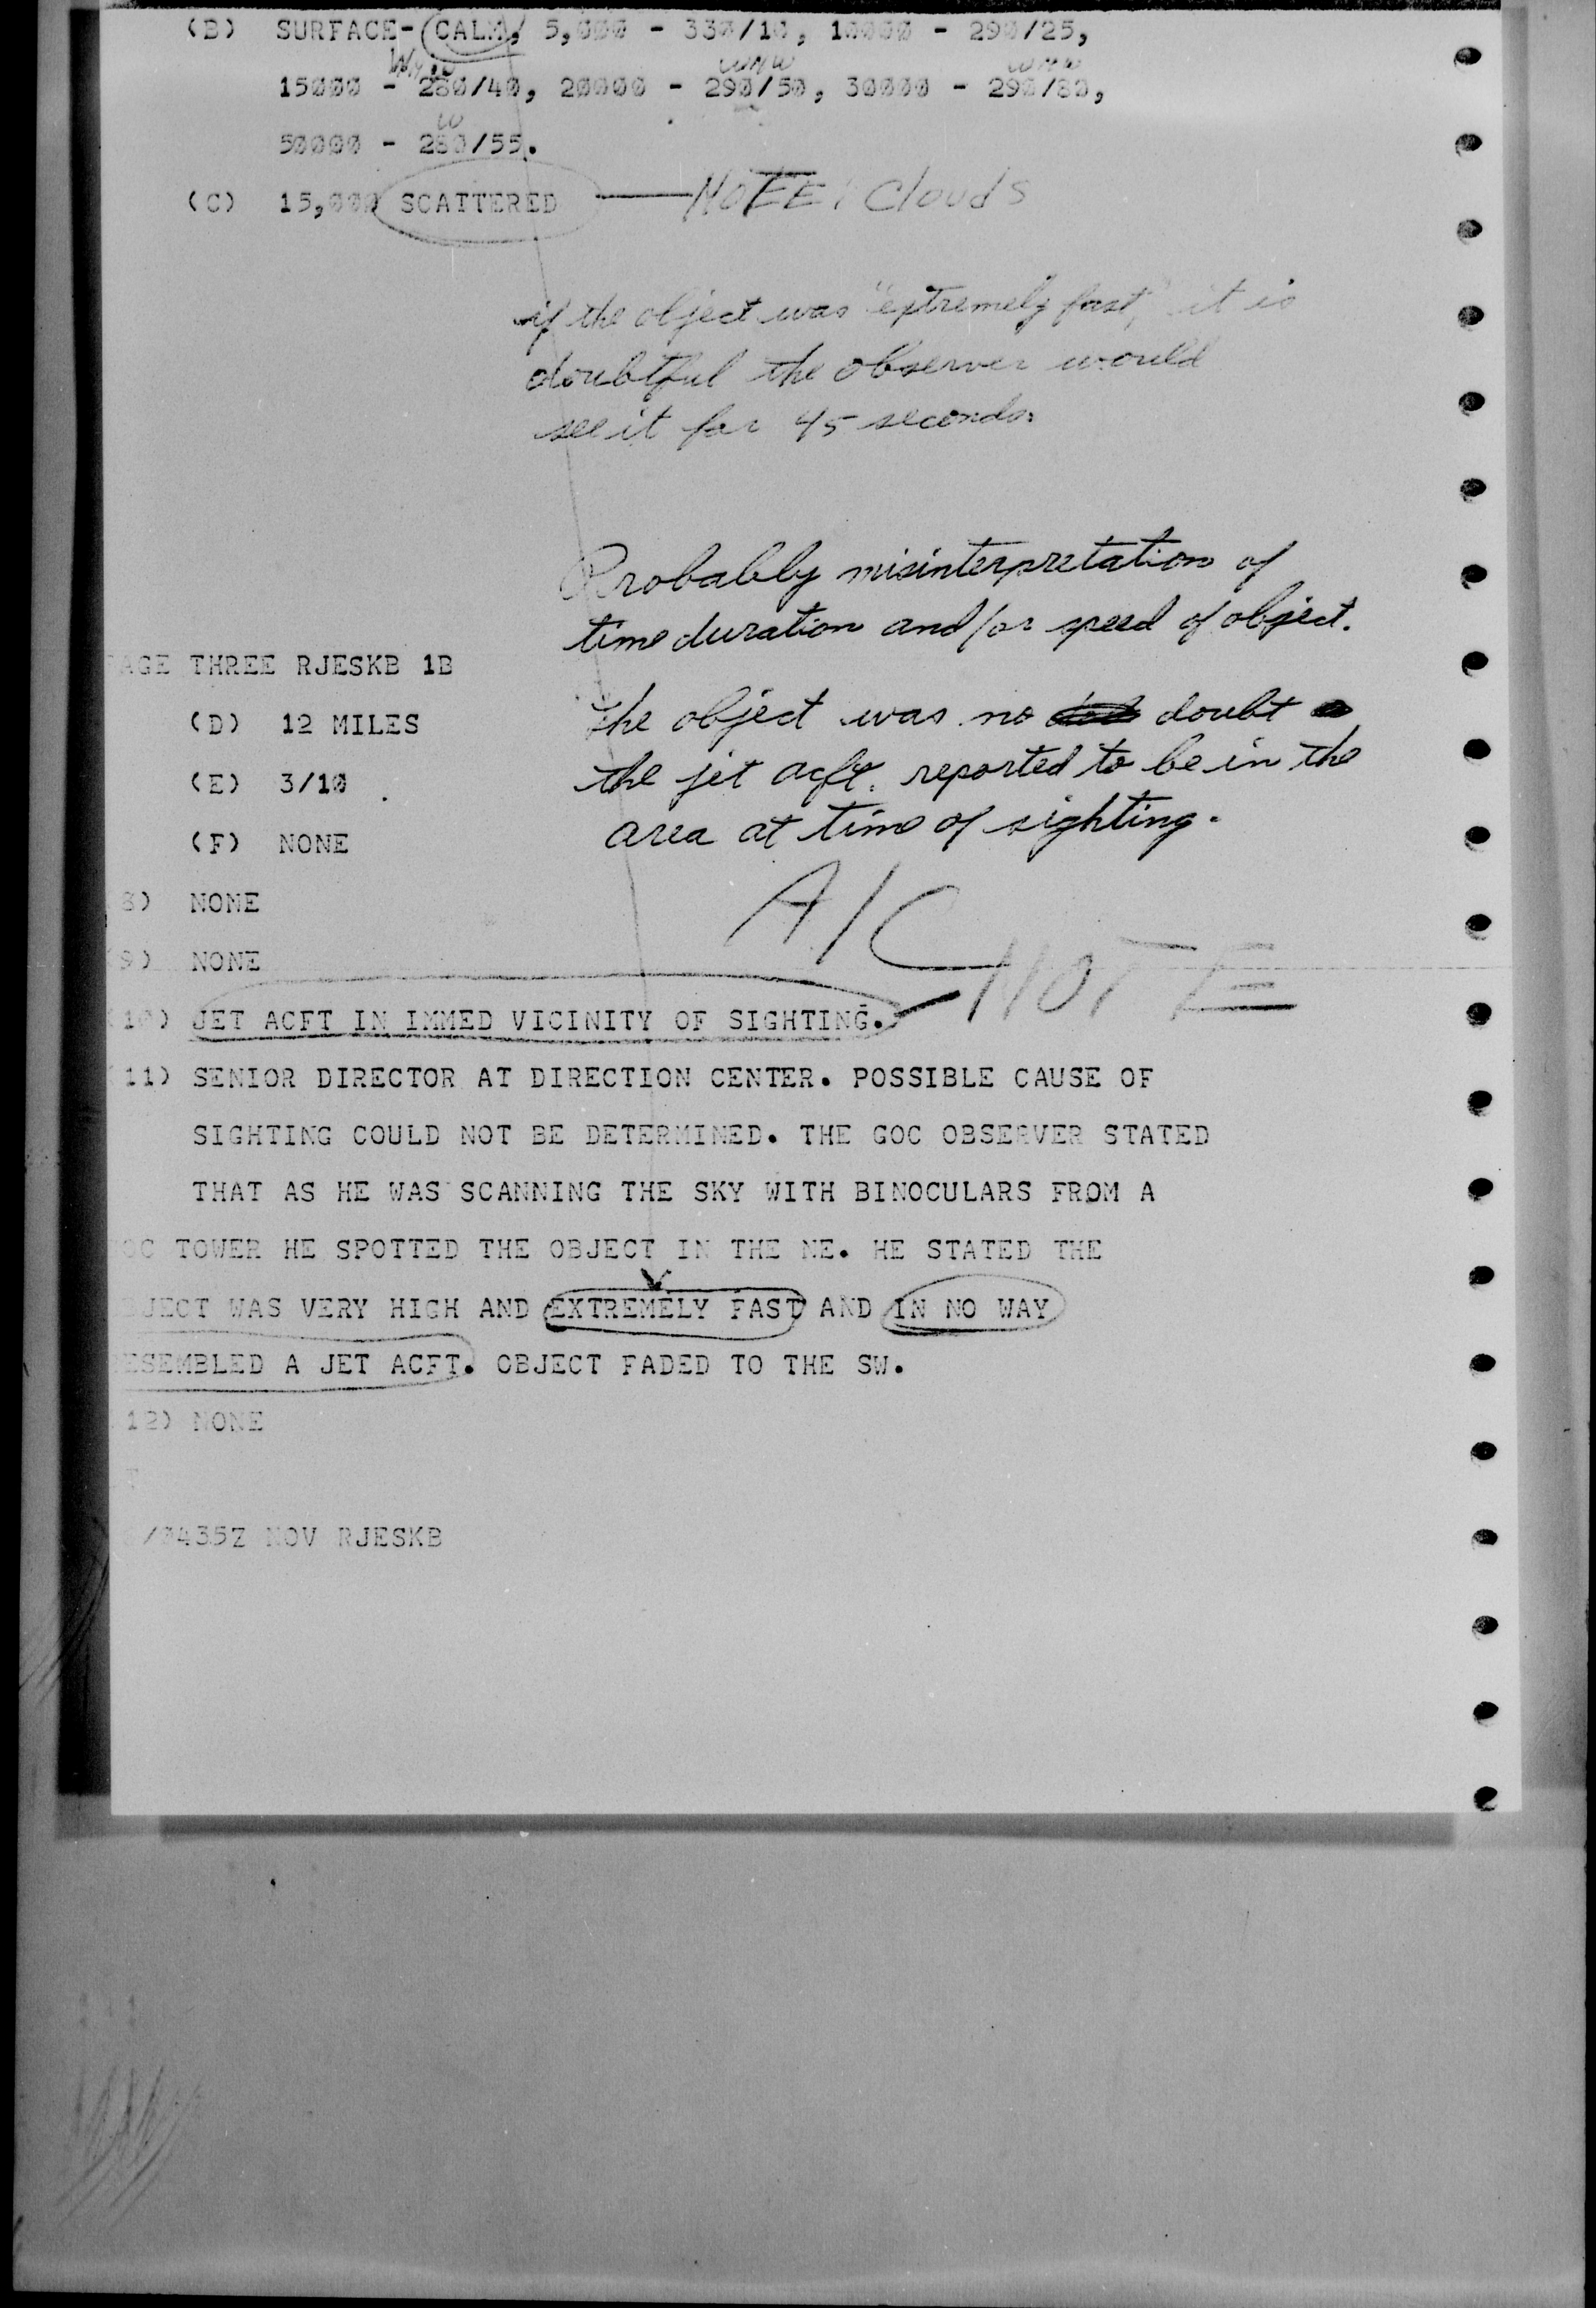 (B) SURFACE- CALM, 5,000 - 330/10, 10000 - 290/25,
WNW WNW
15000 - 280/40, 20000 - 290/50, 30000 - 290/80,
W
50000 - 280/55.
(C) 15,000 SCATTERED — NOTE! Clouds
if the object was "extremely fast," it is
doubtful the observer would
see it for 45 seconds.
Probably misinterpretation of
time duration and/or speed of object.
AGE THREE RJESKB 1B
The object was no doubt
(D) 12 MILES
the jet acft. reported to be in the
(E) 3/10
area at time of sighting.
(F) NONE
A/C
8) NONE
9) NONE
NOTE
10) JET ACFT IN IMMED VICINITY OF SIGHTING.
11) SENIOR DIRECTOR AT DIRECTION CENTER. POSSIBLE CAUSE OF
SIGHTING COULD NOT BE DETERMINED. THE GOC OBSERVER STATED
THAT AS HE WAS SCANNING THE SKY WITH BINOCULARS FROM A
OC TOWER HE SPOTTED THE OBJECT IN THE NE. HE STATED THE
JECT WAS VERY HIGH AND EXTREMELY FAST AND IN NO WAY
ESEMBLED A JET ACFT. OBJECT FADED TO THE SW.
12) NONE
/0435Z NOV RJESKB